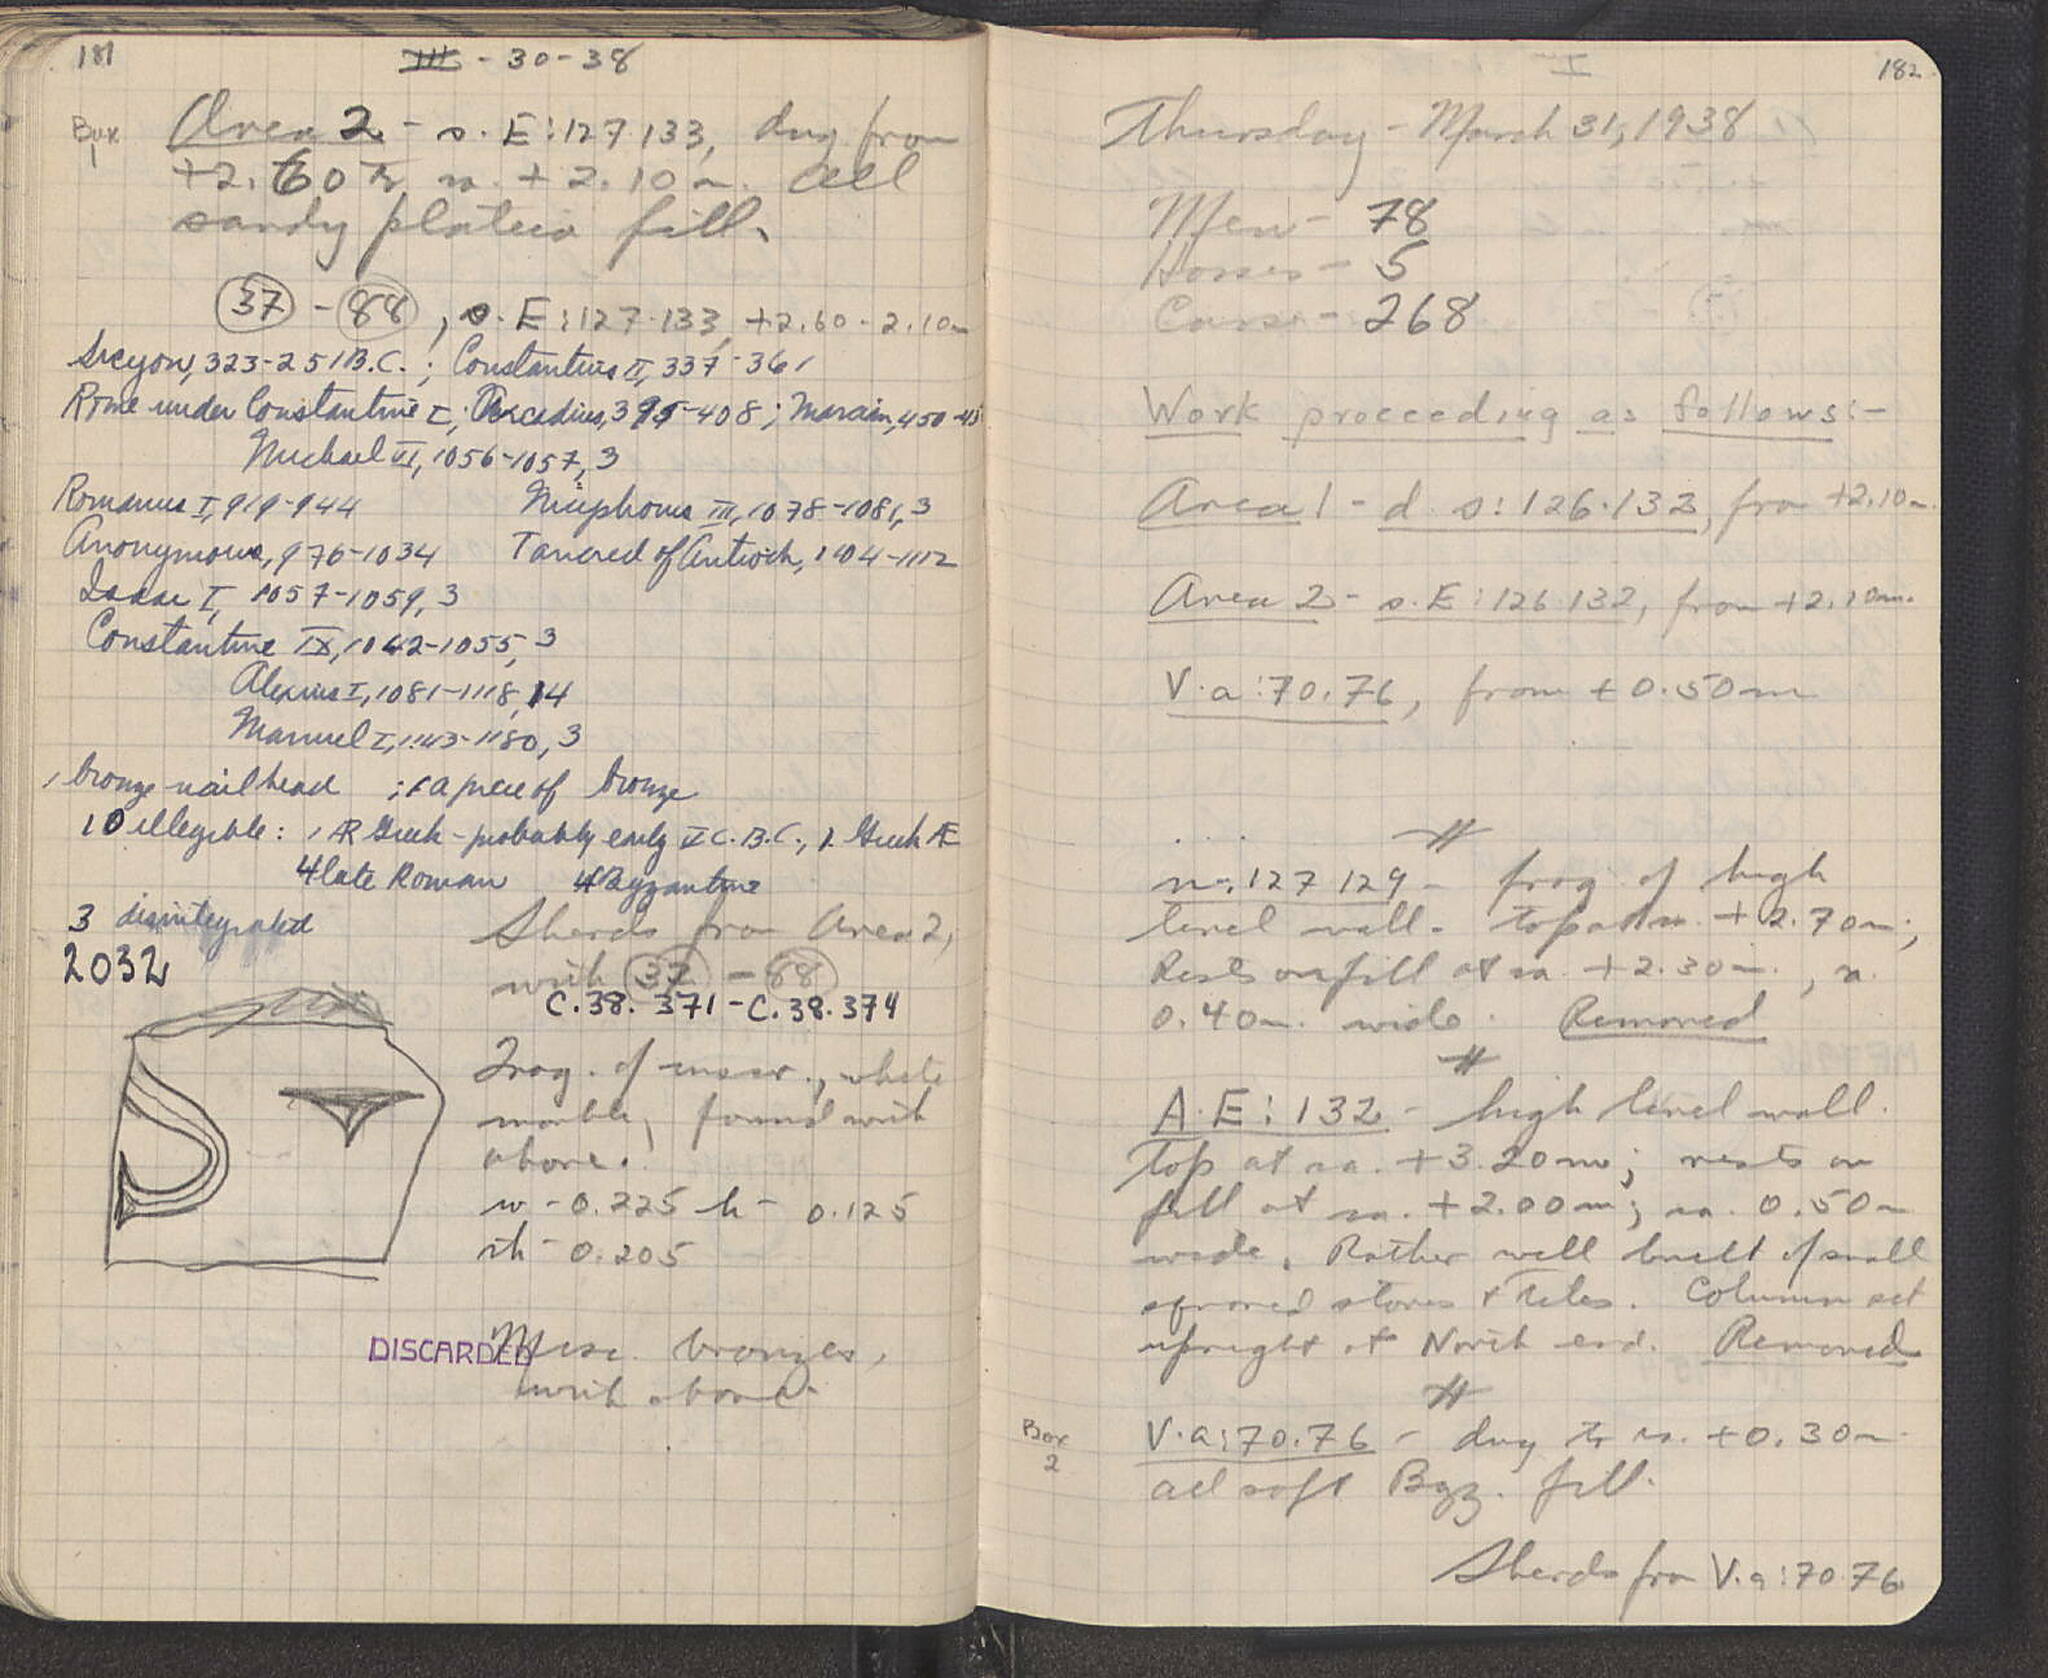 181
III - 30-38
Box
1
Area 2 - s. E:127.133, dug from
+2.60 to ca. +2.10m. All
sandy plateia fill.
37 - 88, s. E:127.133, +2.60-2.10m
Sicyon, 323-251 B.C.; Constantius II, 337-361
Rome under Constantine I; Arcadius, 395-408; Marcian, 450-45
Michael VI, 1056-1057, 3
Romanus I, 919-944 Nicephorus III, 1078-1081, 3
Anonymous, 976-1034 Tancred of Antioch, 1104-1112
Isaac I, 1057-1059, 3
Constantine IX, 1042-1055, 3
Alexius I, 1081-1118, 14
Manuel I, 1143-1180, 3
1 bronze nailhead ; 1 a piece of bronze
10 illegible: 1 AR Greek - probably early V C. B.C., 1 Greek AE
4 late Roman 4 Byzantine
3 disintegrated
2032
Sherds from Area 2,
with 37 - 88
C.38.371 - C.38.374
Frag. of inscr., white
marble, found with
above.
w - 0.225 h - 0.125
th - 0.205
DISCARDED
Misc. bronzes,
with above.
182
Thursday - March 31, 1938
Men - 78
Horses - 5
Cars - 268
Work proceeding as follows:-
Area 1 - d. s:126.132, from +2.10m.
Area 2 - s. E:126.132, from +2.10m.
V.a:70.76, from +0.50m
#
n-:127 129 - frag of high
level wall. Top at ca. +2.70m;
Rests on fill at ca. +2.30m., ca.
0.40m. wide. Removed
#
A.E:132 - high level wall.
Top at ca. +3.20m; rests on
fill at ca. +2.00m; ca. 0.50m
wide. Rather well built of small
squared stones & tiles. Column set
upright at North end. Removed
#
Box
2
V.a:70.76 - dug to ca. +0.30m.
all soft Byz. fill.
Sherds from V.a:70.76